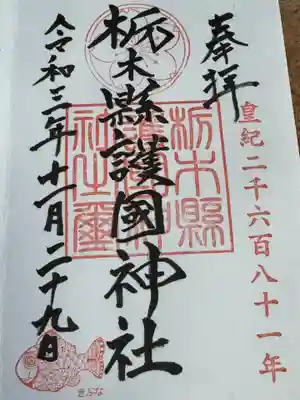 奉拝
皇紀二千六百八十一年
栃木縣護國神社
栃木縣
護國神
社之璽
令和三年十一月二十九日
きぶな